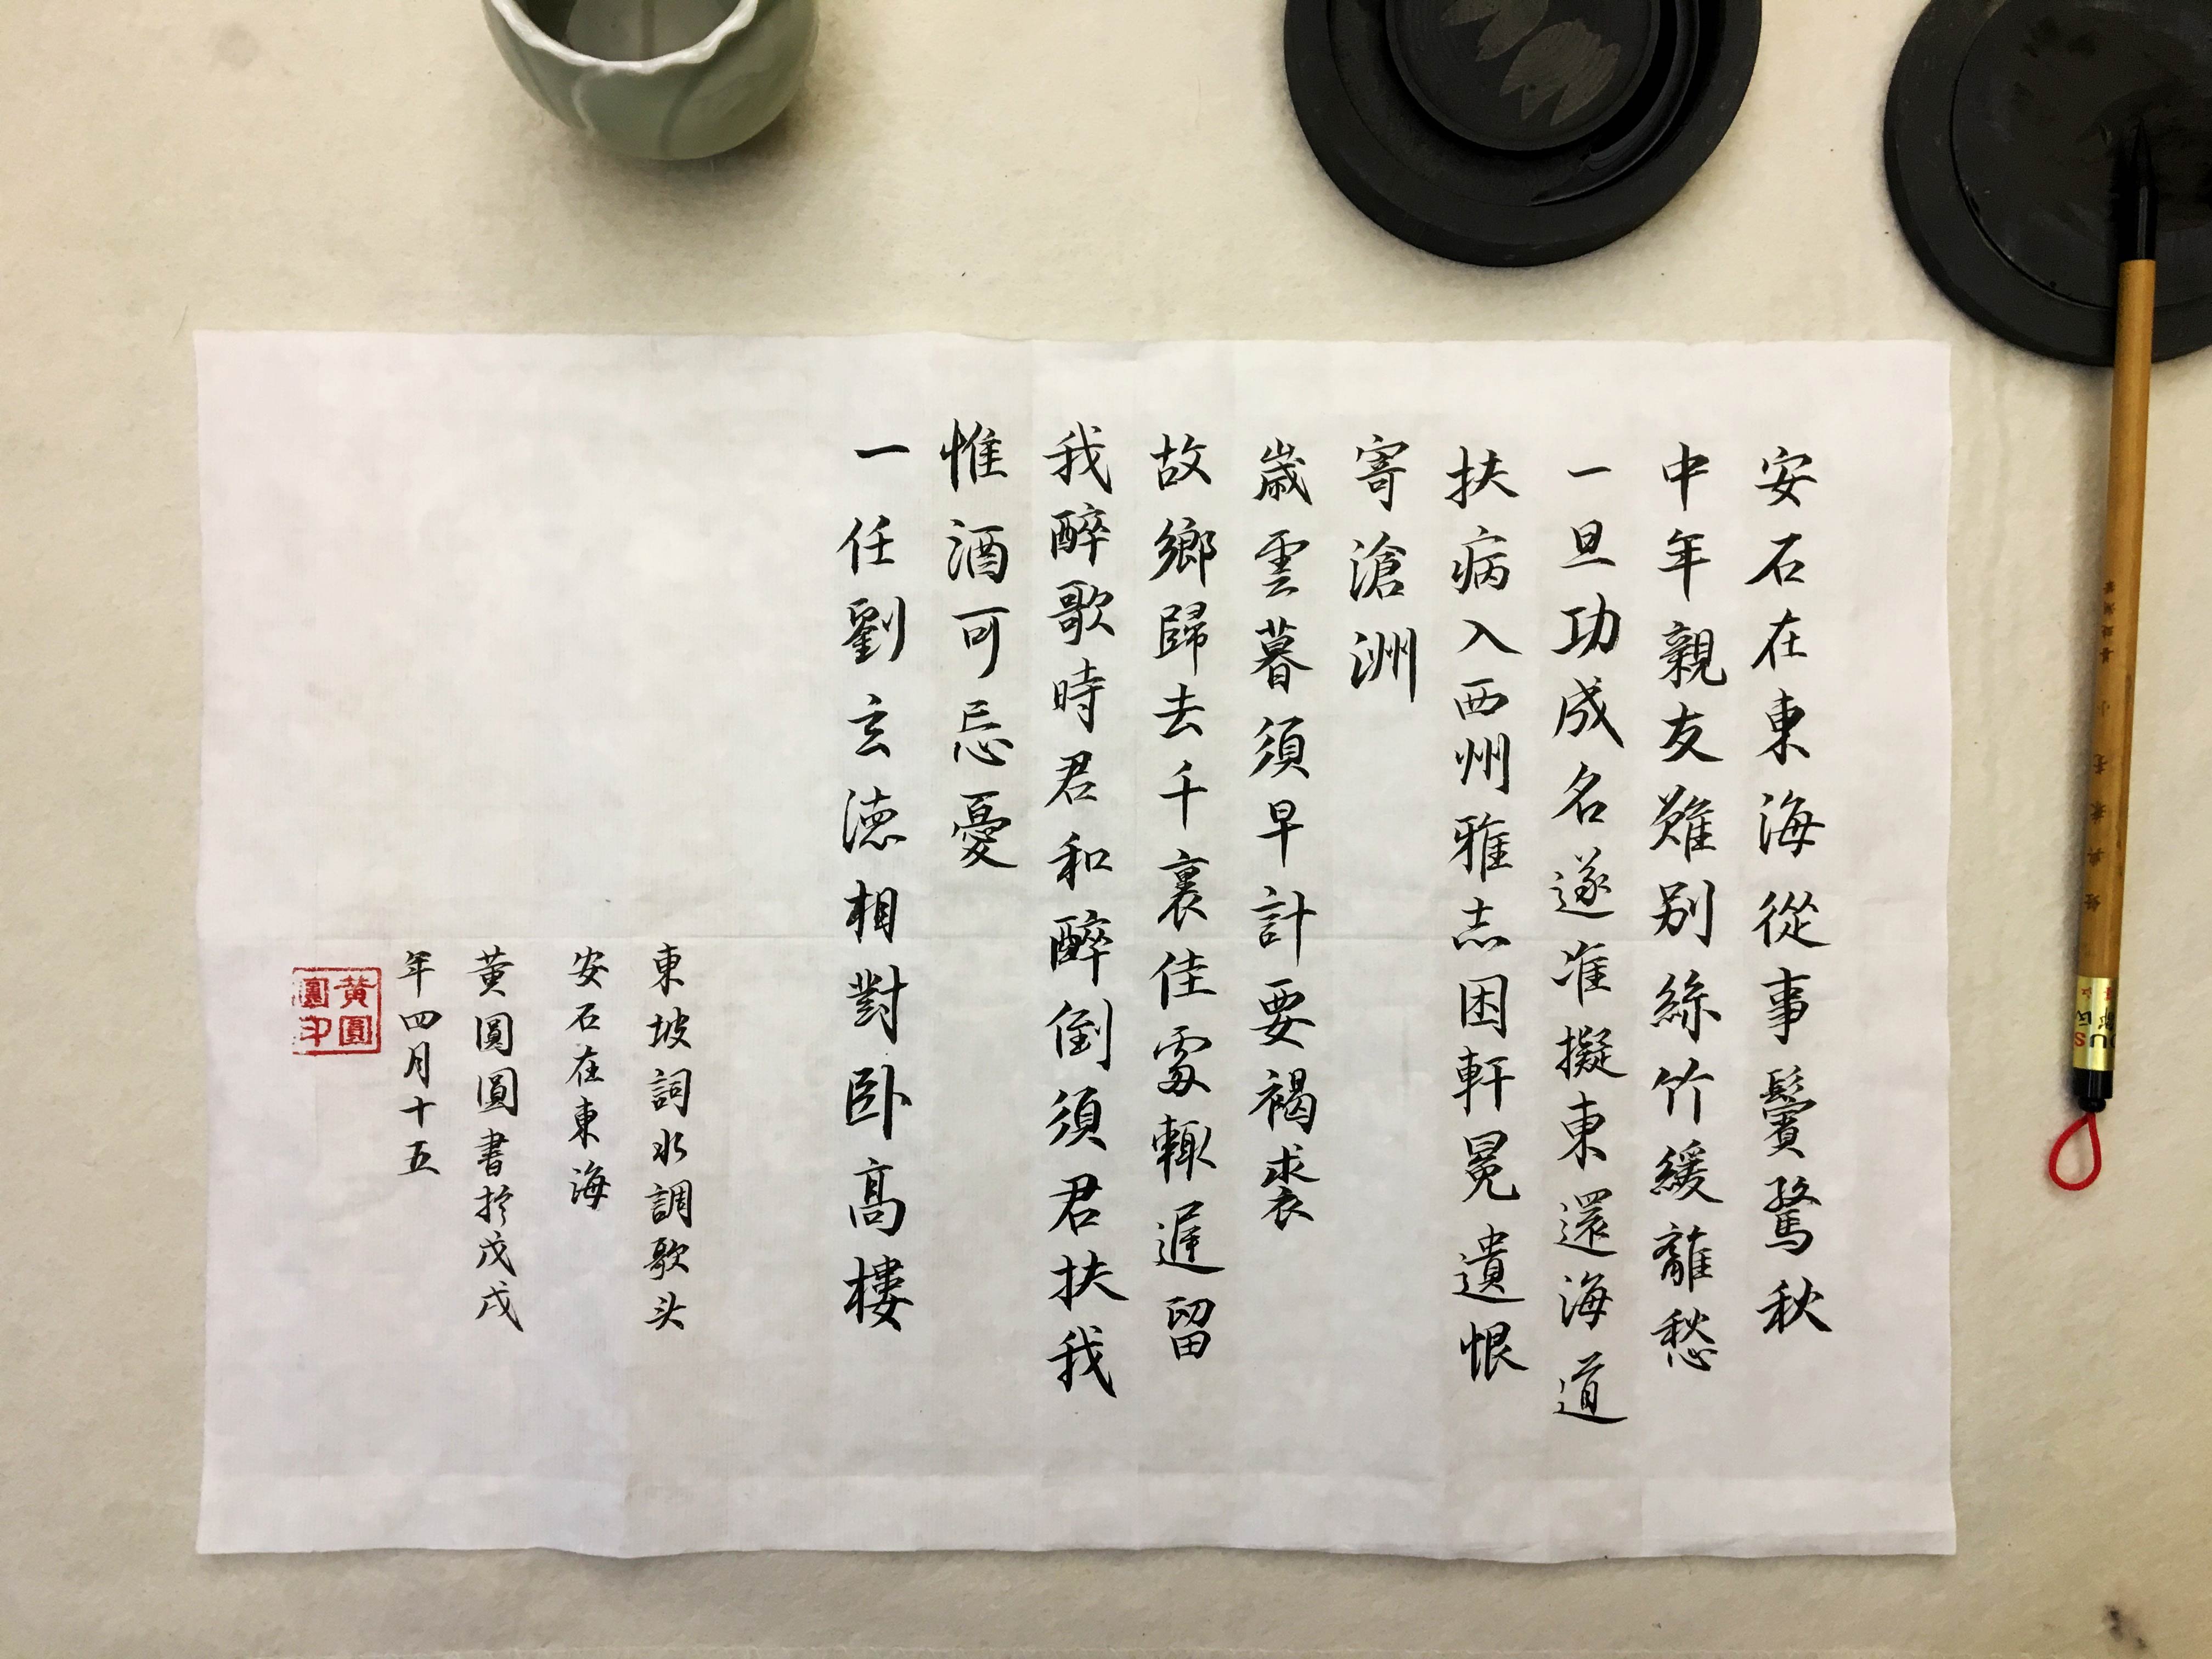 安石在東海從事鬢驚秋
中年親友難别絲竹緩離愁
一旦功成名遂准擬東還海道
扶病入西州雅志困軒冕遺恨
寄滄洲
歲雲暮須早計要褐裘
故鄉歸去千裏佳處輒遲留
我醉歌時君和醉倒須君扶我
惟酒可忘憂
一任劉玄德相對卧高樓
東坡詞水調歌头
安石在東海
黄圓圓書於戊戌
年四月十五
黄圓
圓印